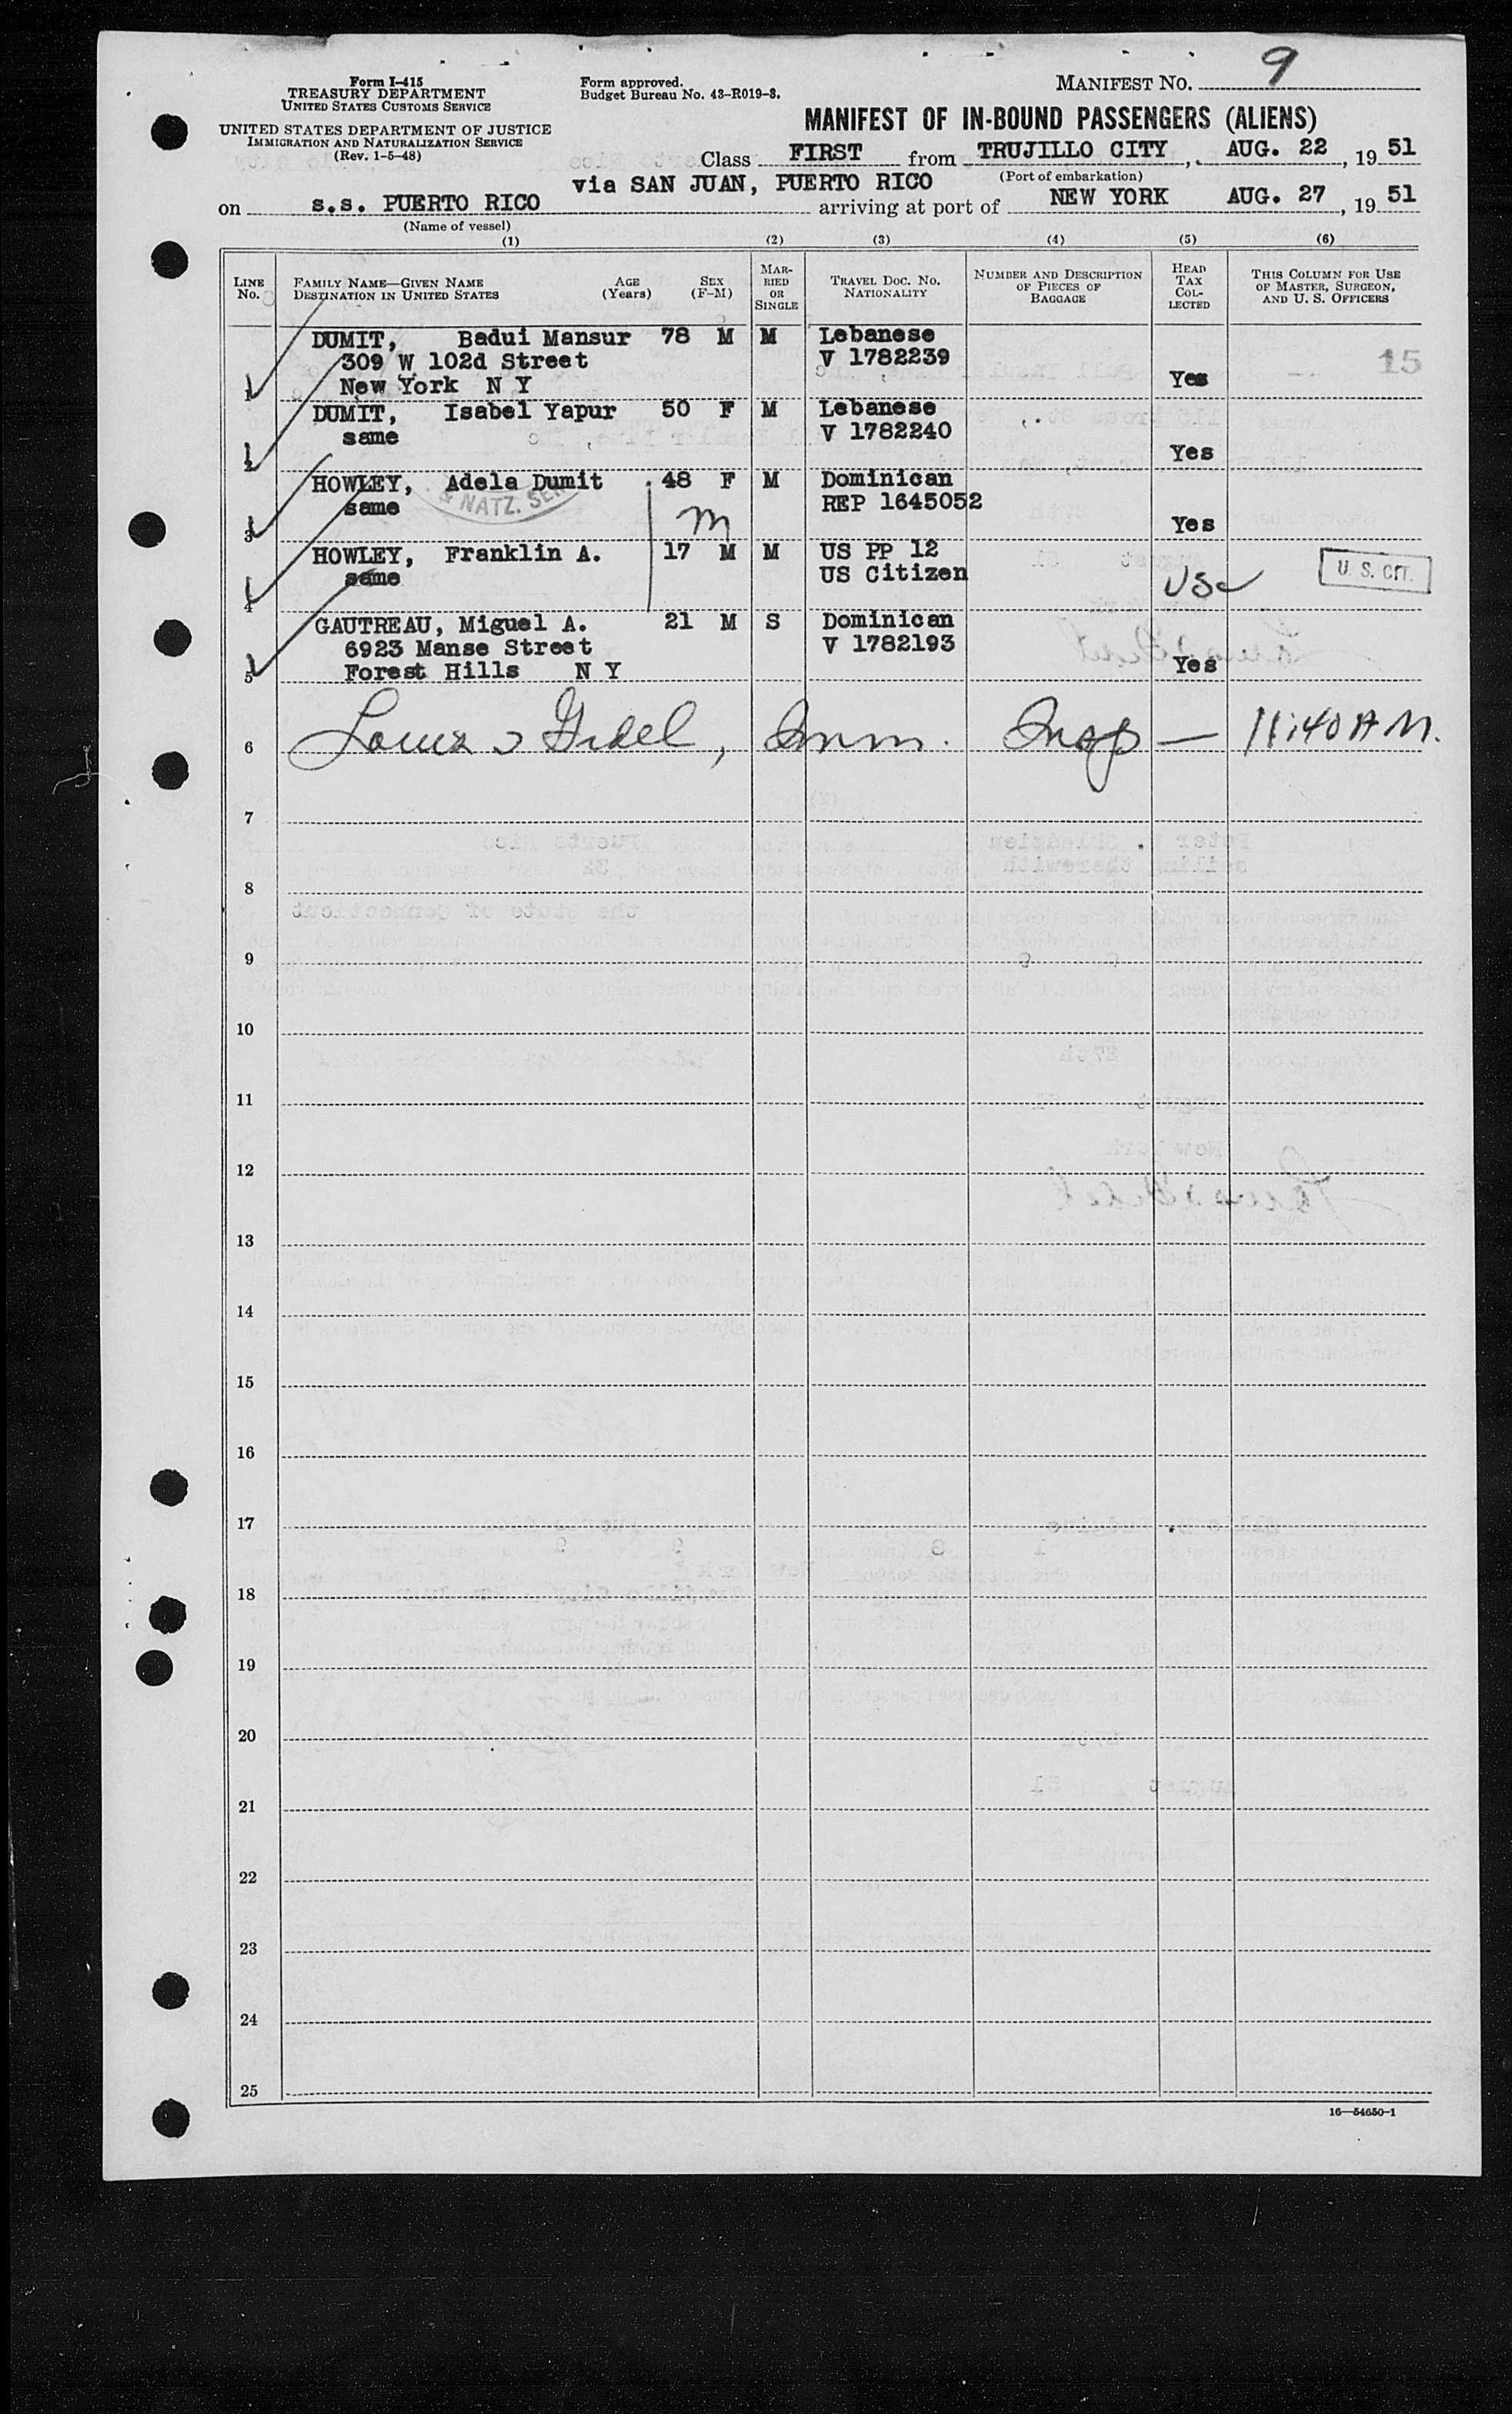 Form I-415
TREASURY DEPARTMENT
UNITED STATES CUSTOMS SERVICE
UNITED STATES DEPARTMENT OF JUSTICE
IMMIGRATION AND NATURALIZATION SERVICE
(Rev. 1-5-48)
Form approved.
Budget Bureau No. 43-R019-3.
MANIFEST NO. 9
MANIFEST OF IN-BOUND PASSENGERS (ALIENS)
Class FIRST from TRUJILLO CITY, AUG. 22, 19 51
(Port of embarkation)
via SAN JUAN, PUERTO RICO
on s.s. PUERTO RICO arriving at port of NEW YORK AUG. 27, 19 51
(Name of vessel)
(1) (2) (3) (4) (5) (6)
LINE No. FAMILY NAME—GIVEN NAME DESTINATION IN UNITED STATES AGE (Years) SEX (F-M) MARRIED OR SINGLE TRAVEL DOC. NO. NATIONALITY NUMBER AND DESCRIPTION OF PIECES OF BAGGAGE HEAD TAX COLLECTED THIS COLUMN FOR USE OF MASTER, SURGEON, AND U. S. OFFICERS
DUMIT, Badui Mansur 78 M M Lebanese
309 W 102d Street V 1782239 15
1 New York N Y Yes
DUMIT, Isabel Yapur 50 F M Lebanese
same V 1782240
2 Yes
HOWLEY, Adela Dumit 48 F M Dominican
same REP 1645052
& NATZ. SER
3 m Yes
HOWLEY, Franklin A. 17 M M US PP 12
same US Citizen U. S. CIT.
4 USC
GAUTREAU, Miguel A. 21 M S Dominican
6923 Manse Street V 1782193
5 Forest Hills N Y Yes
6 Imm. Insp — 11:40 A M.
7
8
9
10
11
12
13
14
15
16
17
18
19
20
21
22
23
24
25
16—54650-1